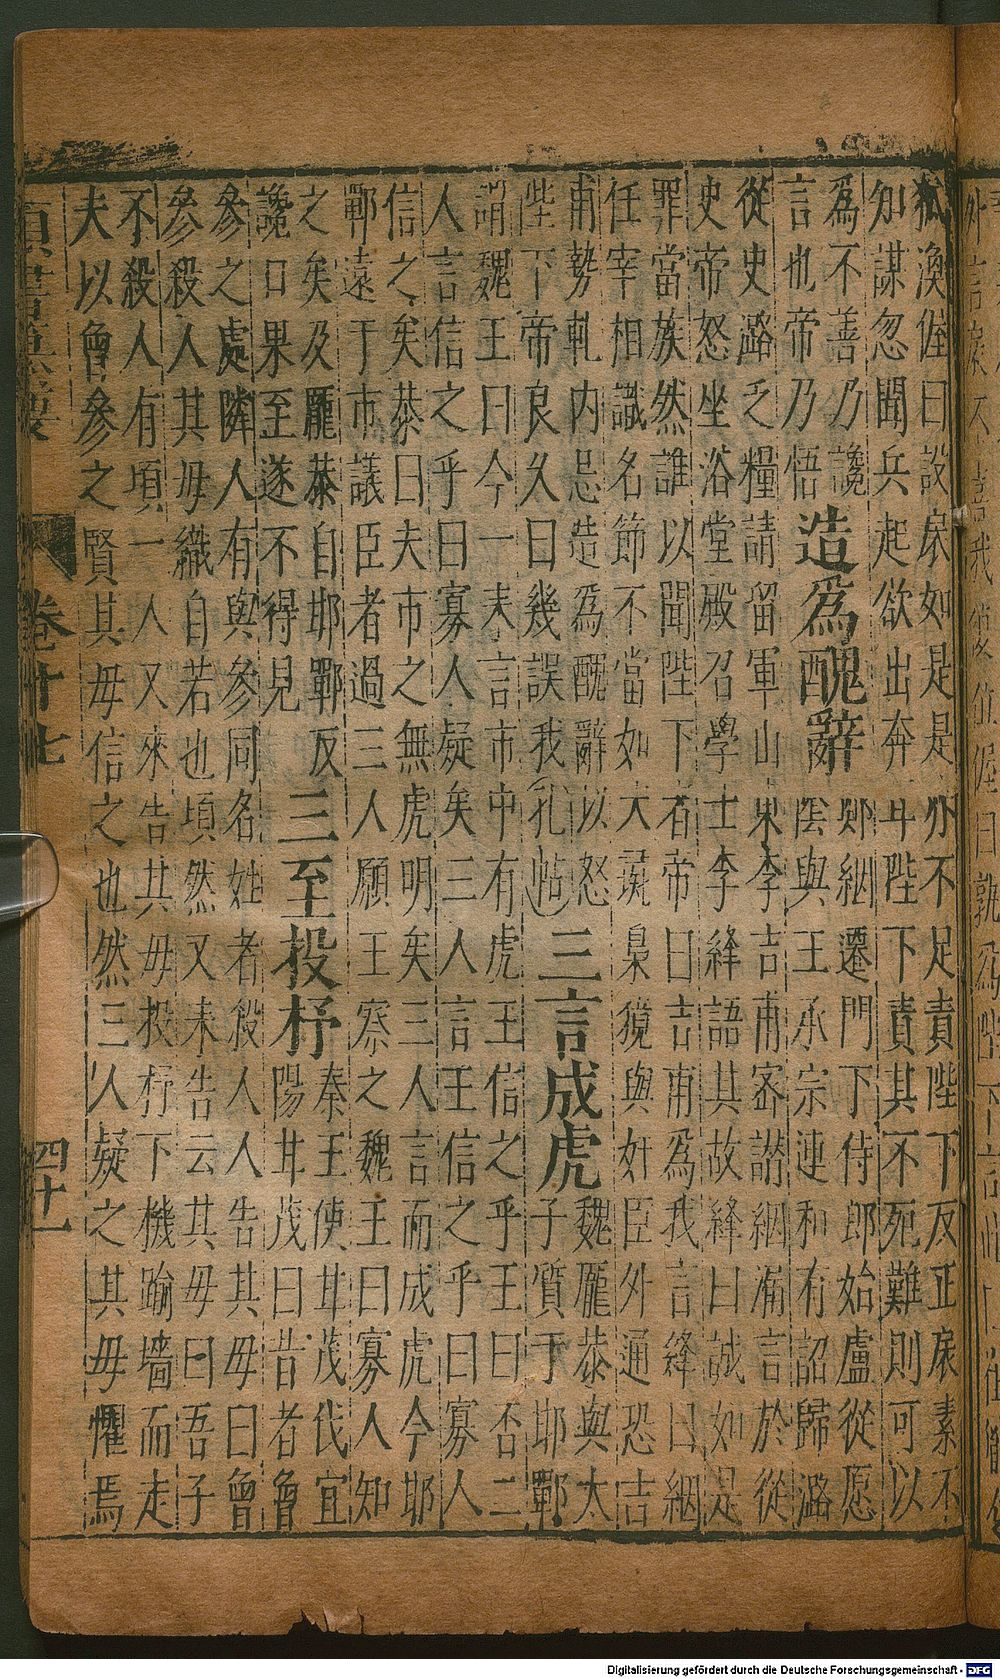 狐渙偓曰設宸如是是亦不足責陛下反正宸素不
知謀忽聞兵起欲出奔耳陛下責其不死難則可以
為不善乃讒
言也帝乃悟
造爲醜辭
鄭絪遷門下侍郎始盧從愿
陰與王承宗連和有詔歸潞
從史潞乏糧請留軍山東李吉甫密譖絪漏言於從
史帝怒坐浴堂殿召學士李絳語其故絳曰誠如是
罪當族然誰以聞陛下者帝曰吉甫為我言絳曰絪
任宰相識名節不當如犬彘梟獍與奸臣外通恐吉
甫勢軋内忌造爲醜辭以怒
陛下帝良久曰幾誤我孔帖
三言成虎
魏龐恭與太
子質于耶鄲
謂魏王曰今一夫言市中有虎王信之乎王曰否二
人言信之乎曰寡人疑矣三人言王信之乎曰寡人
信之矣恭曰夫市之無虎明矣三人言而成虎今耶
鄲遠于市議臣者過三人願王察之魏王曰寡人知
之矣及龐恭自耶鄲反
讒口果至遂不得見
三至投杼
秦王使甘茂伐宜
陽甘茂曰昔者曾
參之處隣人有與參同名姓者殺人人告其母曰曾
參殺人其母織自若也頃然又来告云其母曰吾子
不殺人有頃一人又來告其母投杼下機踰墻而走
夫以曾參之賢其母信之也然三人疑之其母懼焉
卷十七
四十一
Digitalisierung gefördert durch die Deutsche Forschungsgemeinschaft - DFG